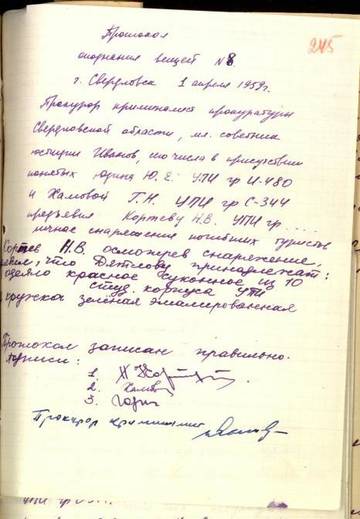 245
Протокол
опознания вещей №8
г. Свердловск 1 апреля 1959 г.
Прокурор криминалист прокуратуры
Свердловской области, мл. советник
юстиции Иванов, сего числа в присутствии
понятых Юдина Ю.Е. УПИ гр И-480
и Хамовой Г.Н. УПИ гр С-344
предъявил Кортеву Н.В. УПИ гр ....
личное снаряжение погибших туристов
Кортев Н.В. осмотрев снаряжение,
что Дятлову принадлежат:
одеяло красное суконное из 10
студ. корпуса УПИ
кружка зелёная эмалированная
Протокол записан правильно.
подписи:
1.
2. Хамов
3.
Прокурор криминалист
УПИ гр